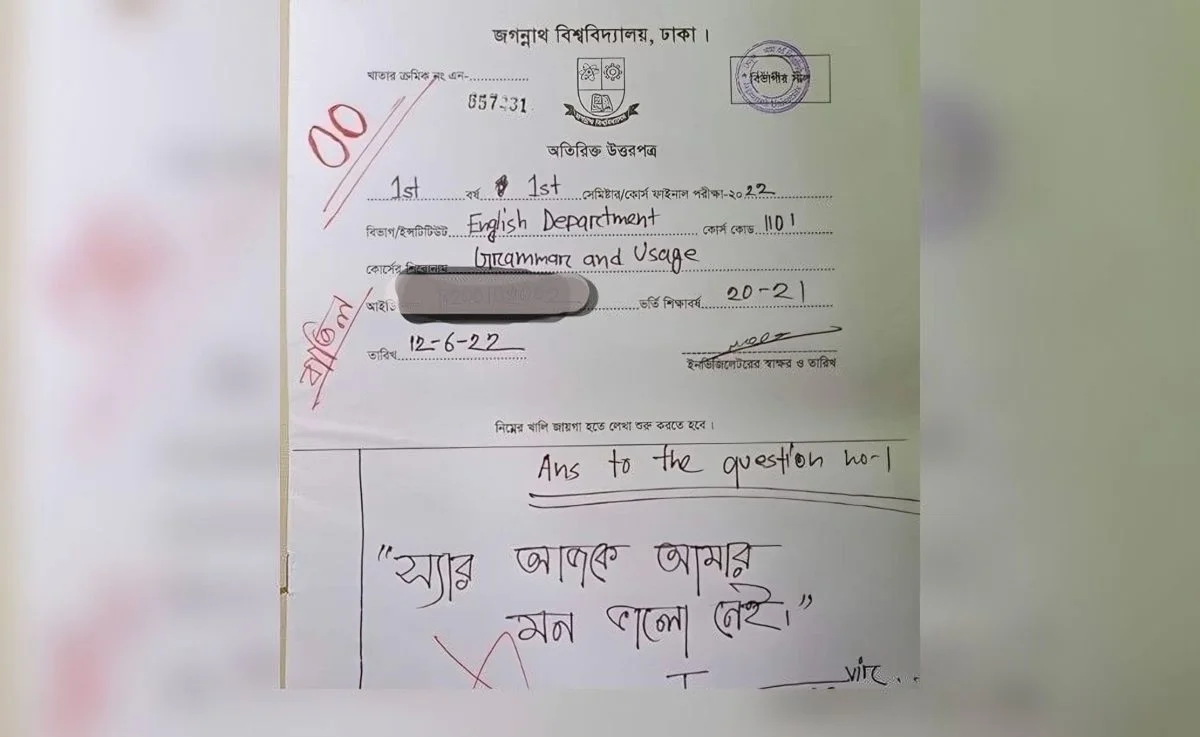 জগন্নাথ বিশ্ববিদ্যালয়, ঢাকা।
খাতার ক্রমিক নং এন-
657231
বিভাগীয় সীল
00
জগন্নাথ বিশ্ববিদ্যালয়
অতিরিক্ত উত্তরপত্র
1st বর্ষ 1st সেমিষ্টার/কোর্স ফাইনাল পরীক্ষা-২০22
বিভাগ/ইন্সটিটিউট English Department কোর্স কোড 1101
কোর্সের শিরোনাম Grammar and Usage
আইডি ভর্তি শিক্ষাবর্ষ 20-21
বাতিল
তারিখ 12-6-22
ইনভিজিলেটরের স্বাক্ষর ও তারিখ
নিম্নের খালি জায়গা হতে লেখা শুরু করতে হবে।
Ans to the question no-1
"স্যার আজকে আমার
মন ভালো নেই।"